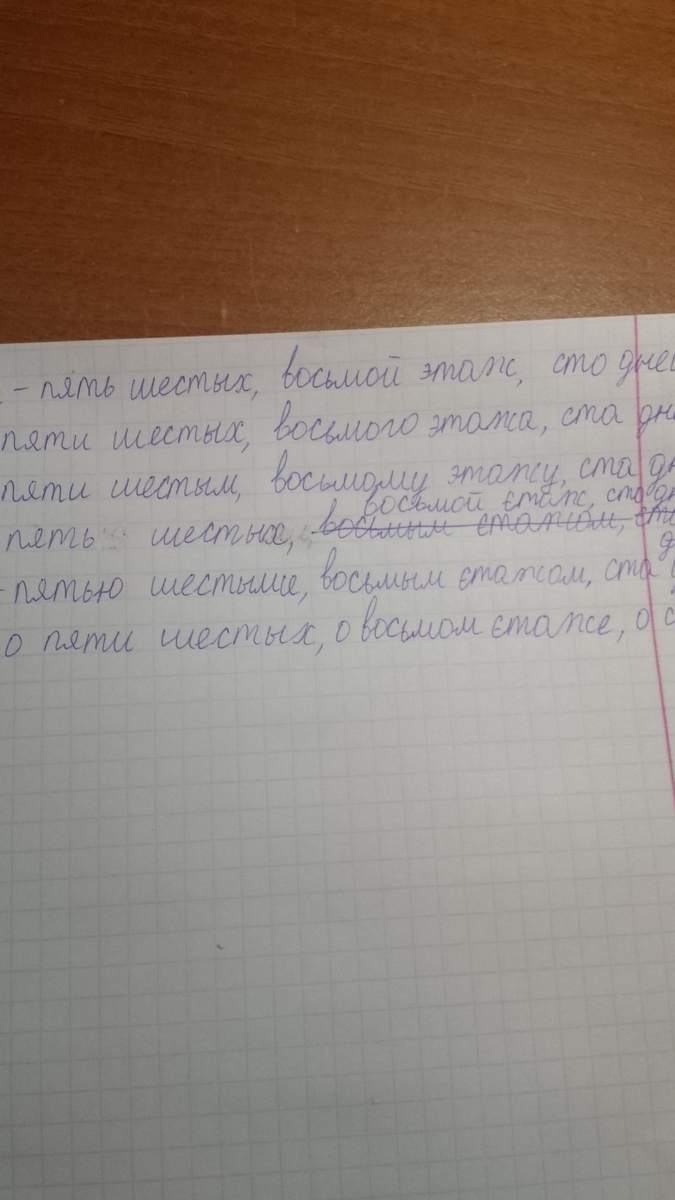 - пять шестых, восьмой этаж, сто дней
пяти шестых, восьмого этажа, ста
пяти шестым, восьмому этажу, ста
восьмой єтаж, сто
пять шестых, восьмым єтажом,
- пятью шестыми, восьмым єтажом, ста
о пяти шестых, о восьмом єтаже, о